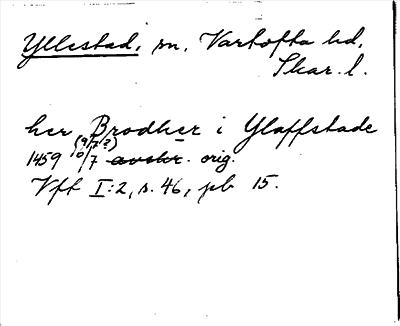 Yllestad, sn, Vartofta hd,
Skar. l.
her Brodher i Ylaffstade
(9/7?)
1459 10/7 avskr. orig.
Vft I:2, s. 46, pb 15.